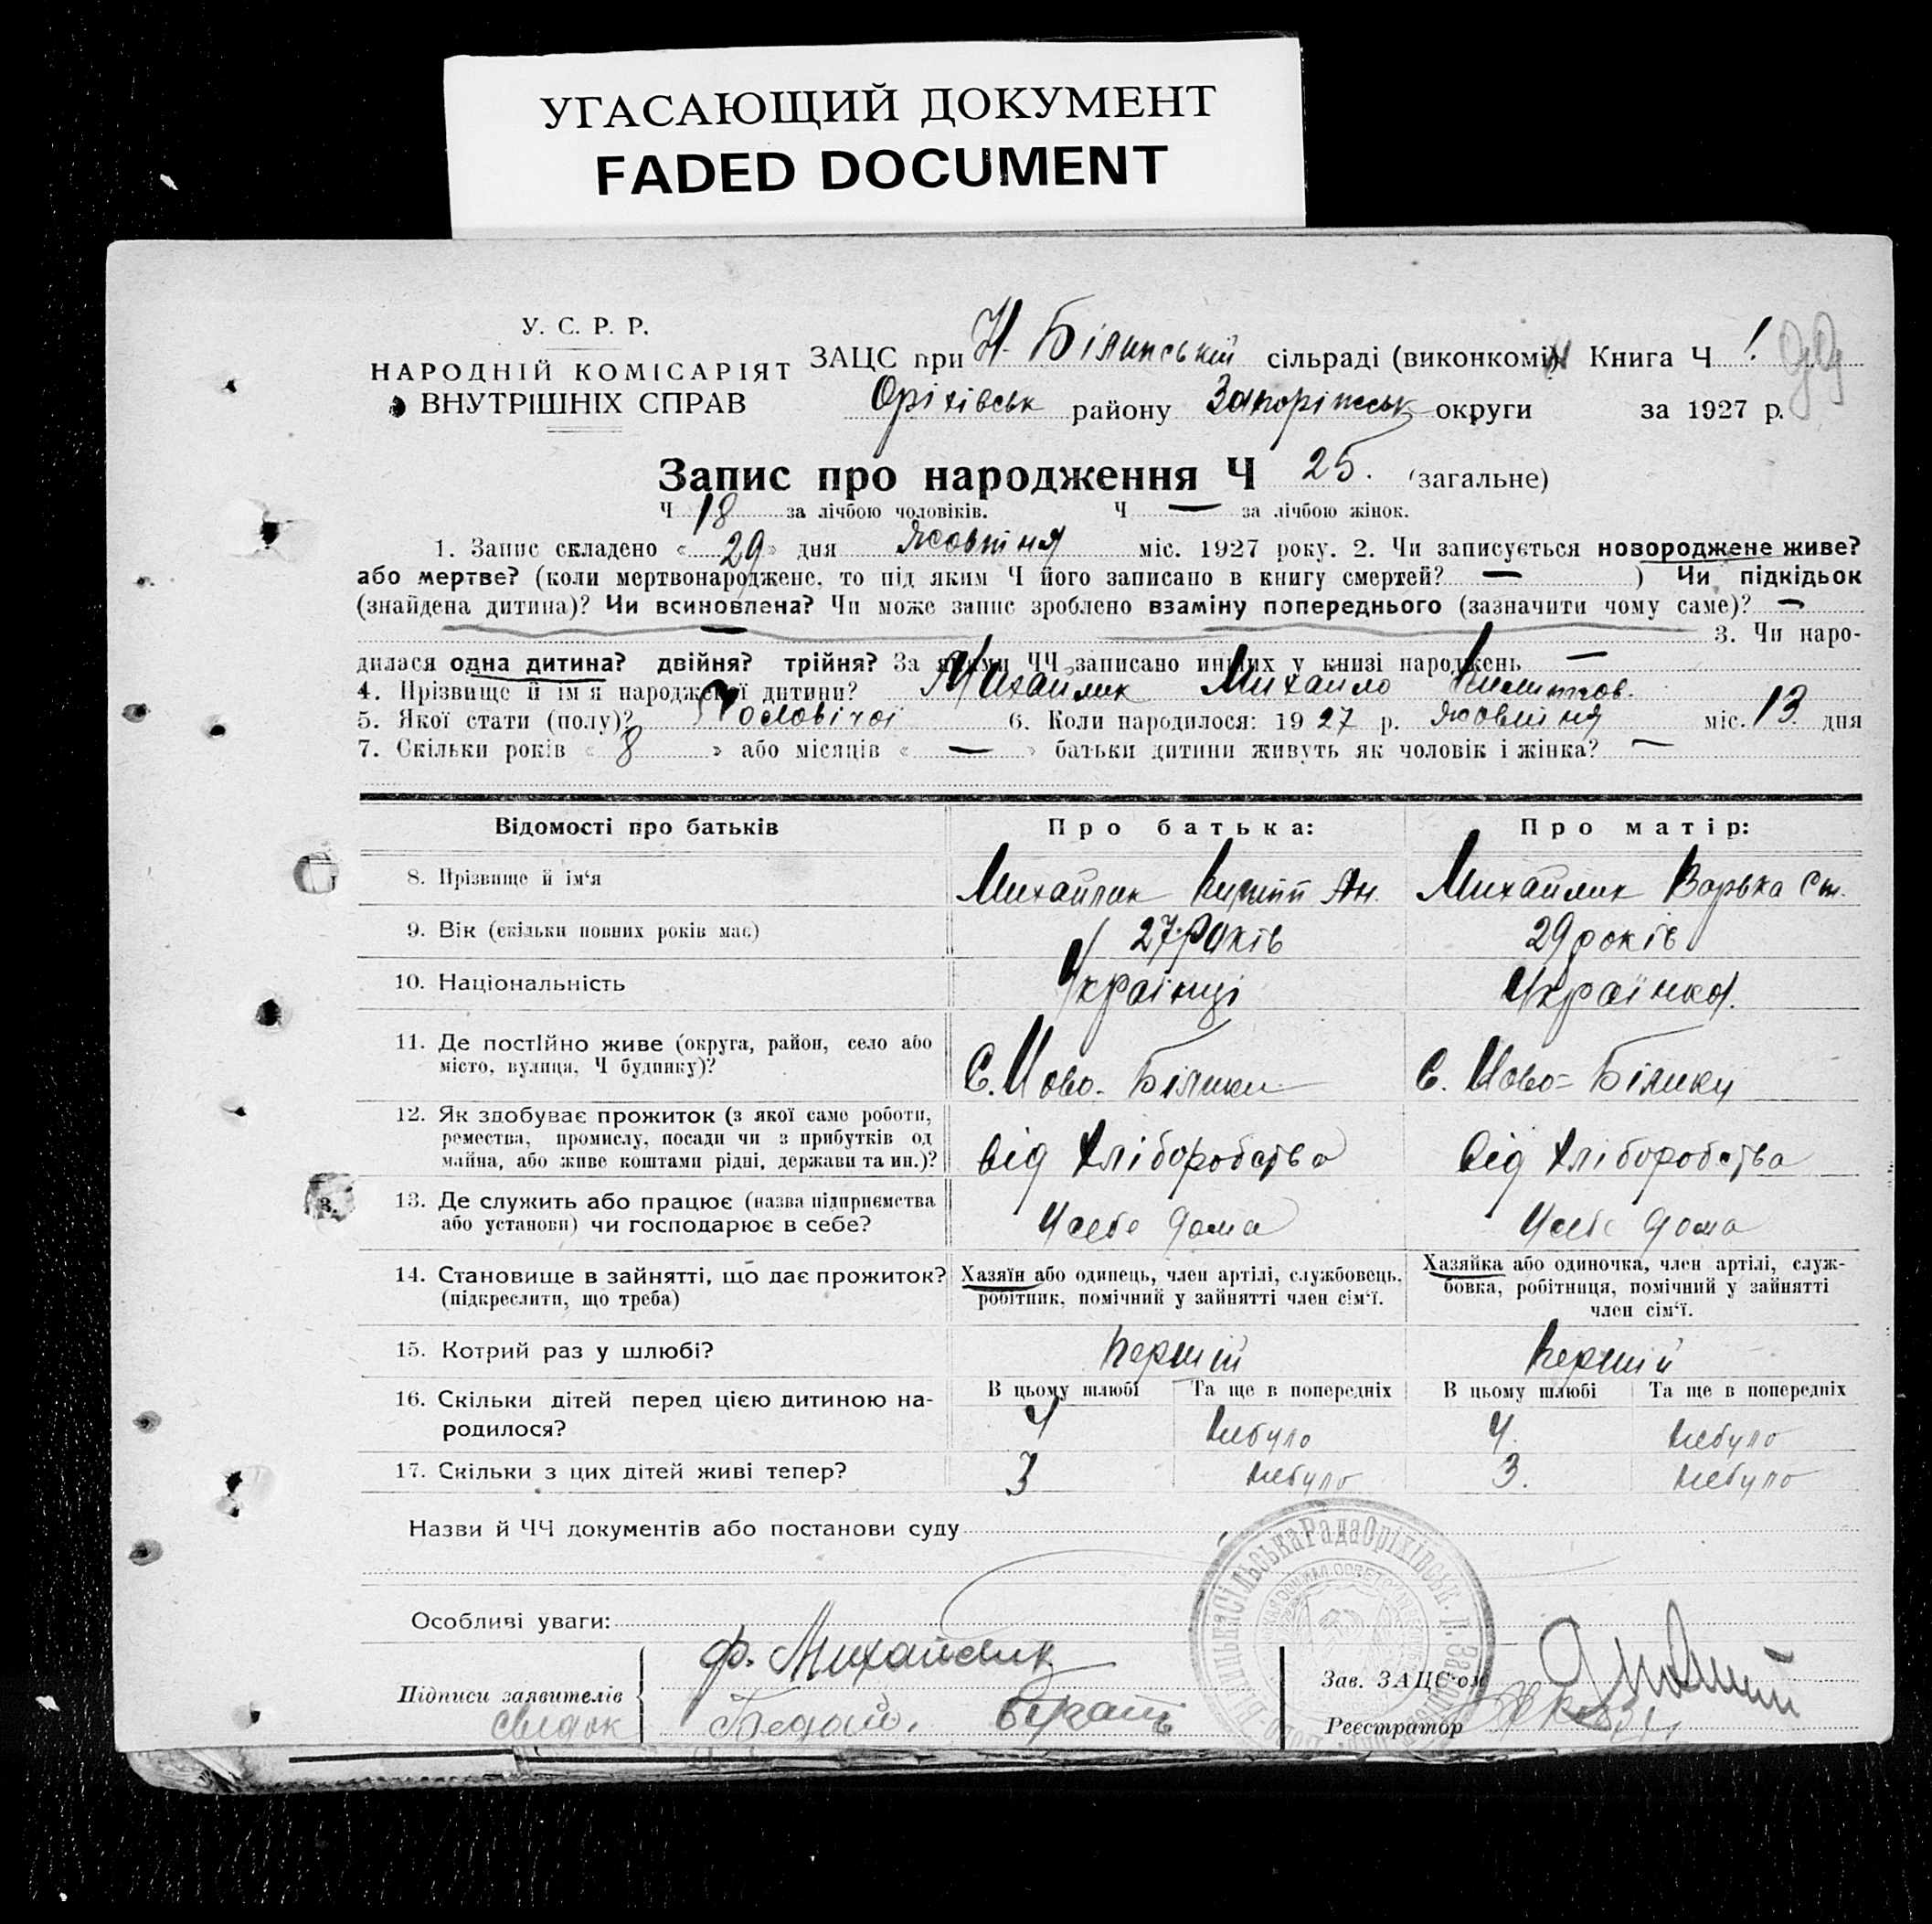 УГАСАЮЩИЙ ДОКУМЕНТ
FADED DOCUMENT
У. С. Р. Р.
НАРОДНІЙ КОМІСАРІЯТ
ВНУТРІШНІХ СПРАВ
ЗАЦС при Н-Білицькій сільраді (виконкомі) Книга Ч 1
Оріхівськ району Запоріжськ округи за 1927 р.
Запис про народження Ч 25. (загальне)
Ч 18 за лічбою чоловіків. Ч — за лічбою жінок.
1. Запис складено « 29 » дня жовтня міс. 1927 року. 2. Чи записується новороджене живе?
або мертве? (коли мертвонароджене, то під яким Ч його записано в книгу смертей? — ) Чи підкідьок
(знайдена дитина)? Чи всиновлена? Чи може запис зроблено взаміну попереднього (зазначити чому саме)? —
3. Чи наро-
дилася одна дитина? двійня? трійня? За якими ЧЧ записано инших у книзі народжень —
4. Прізвище й ім'я народженої дитини? Михайлик Михайло
5. Якої статі (полу)? Чоловічої 6. Коли народилося: 1927 р. жовтня міс. 13 дня
7. Скільки років « 8 » або місяців « — » батьки дитини живуть як чоловік і жінка? —
Відомості про батьків Про батька: Про матір:
8. Прізвище й ім'я Михайлик Кирилл Ян. Михайлик Варька Ст.
9. Вік (скільки повних років має) 27 років 29 років
10. Національність Українці Українка.
11. Де постійно живе (округа, район, село або
місто, вулиця, Ч будинку)? С. Ново-Білики С. Ново-Білики
12. Як здобуває прожиток (з якої саме роботи,
ремества, промислу, посади чи з прибутків од
майна, або живе коштами рідні, держави та ин.)? Від хліборобства Від хліборобства
13. Де служить або працює (назва підприємства
або установи) чи господарює в себе? У себе дома У себе дома
14. Становище в зайнятті, що дає прожиток?
(підкреслити, що треба)
Хазяїн або одинець, член артілі, службовець,
робітник, помічний у зайнятті член сім'ї.
Хазяйка або одиночка, член артілі, служ-
бовка, робітниця, помічний у зайнятті
член сім'ї.
15. Котрий раз у шлюбі? Перший Перший
В цьому шлюбі Та ще в попередніх В цьому шлюбі Та ще в попередніх
16. Скільки дітей перед цією дитиною на-
родилося? 4 небуло 4. небуло
17. Скільки з цих дітей живі тепер? 3 небуло 3. небуло
Назви й ЧЧ документів або постанови суду
Особливі уваги:
Підписи заявителів Ф. Михайлик
Свидок
Зав. ЗАЦС'ом
Реєстратор